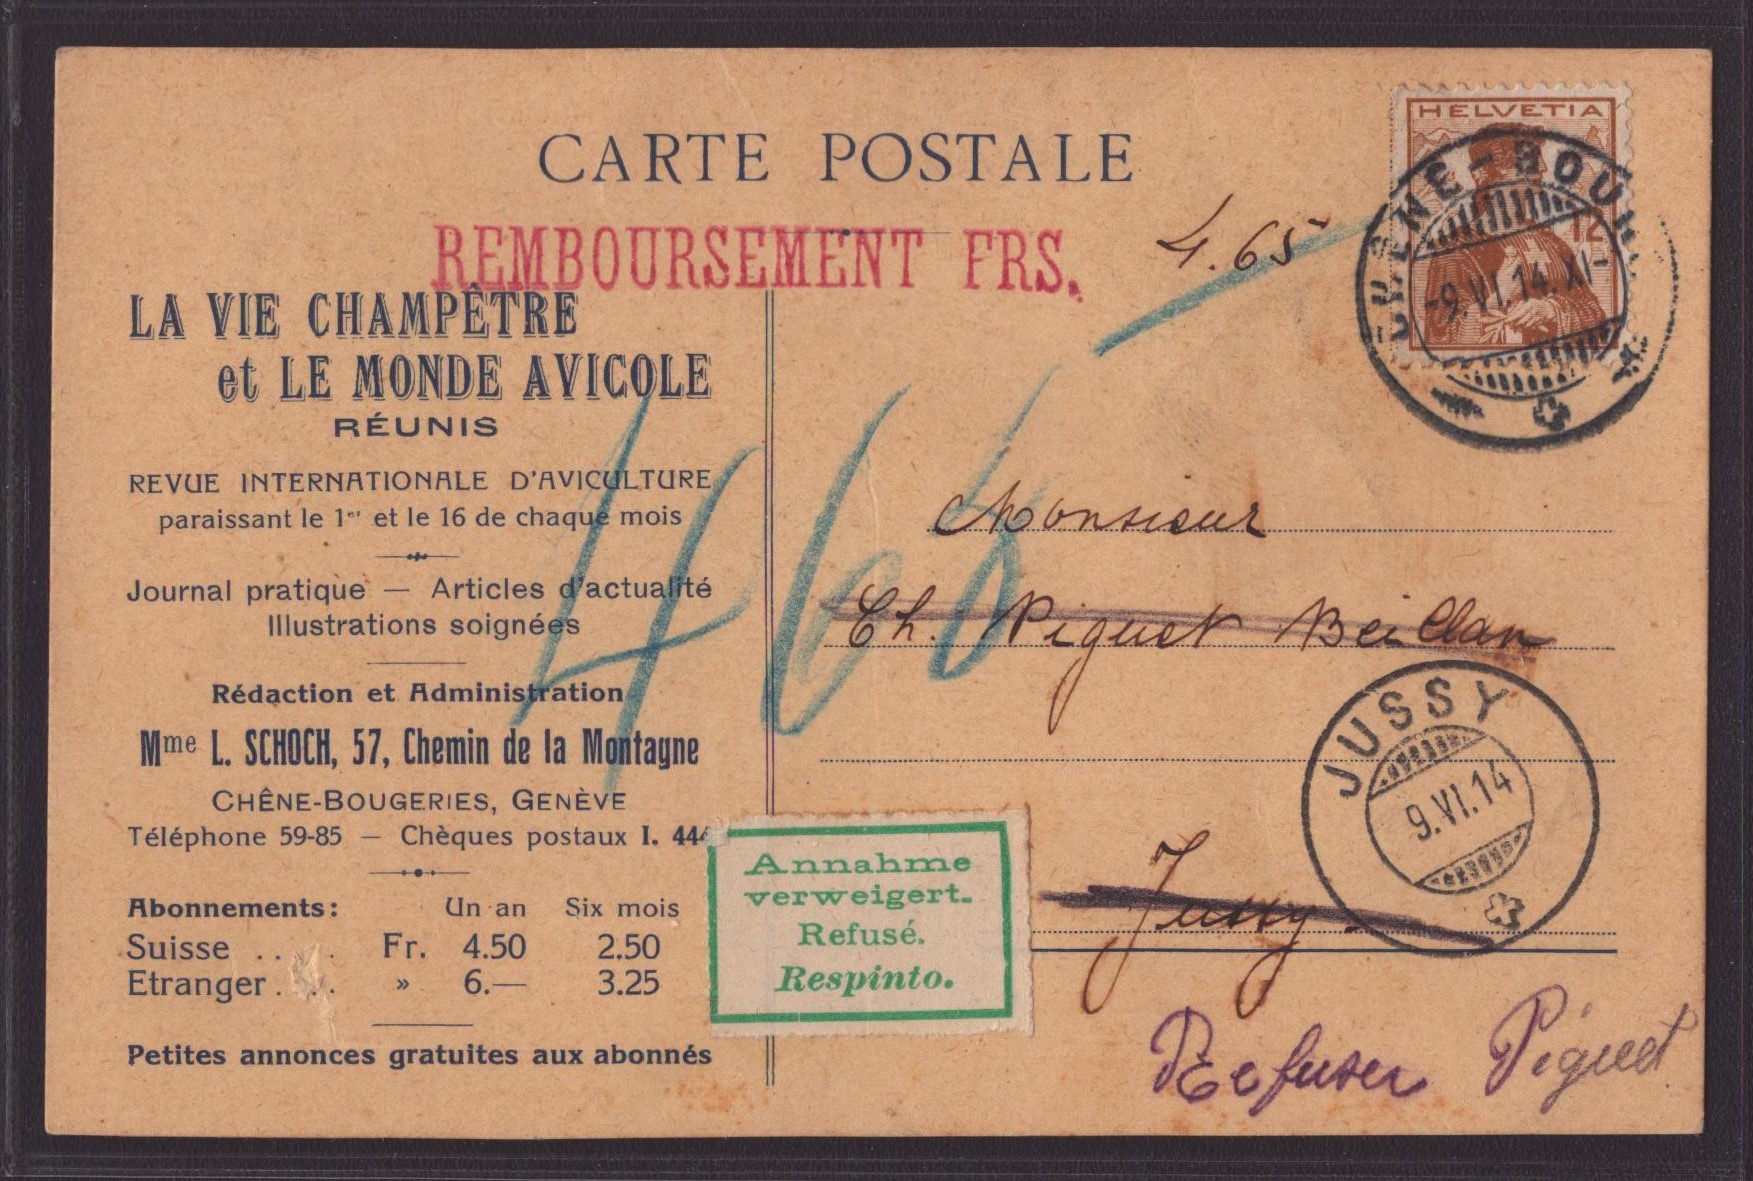 CARTE POSTALE
REMBOURSEMENT FRS. 4.65
HELVETIA
12
CHÊNE-BOUR
-9.VI.14.XI-
LA VIE CHAMPÊTRE
et LE MONDE AVICOLE
RÉUNIS
REVUE INTERNATIONALE D'AVICULTURE
paraissant le 1er et le 16 de chaque mois
Journal pratique — Articles d'actualité
Illustrations soignées
Rédaction et Administration
Mme L. SCHOCH, 57, Chemin de la Montagne
CHÊNE-BOUGERIES, GENÈVE
Téléphone 59-85 — Chèques postaux I. 444
Abonnements: Un an Six mois
Suisse . . . . Fr. 4.50 2.50
Etranger . . . » 6.— 3.25
Petites annonces gratuites aux abonnés
465
Monsieur
Ch. Piguet
Jussy
JUSSY
9.VI.14
Annahme
verweigert.
Refusé.
Respinto.
Refuser Piguet